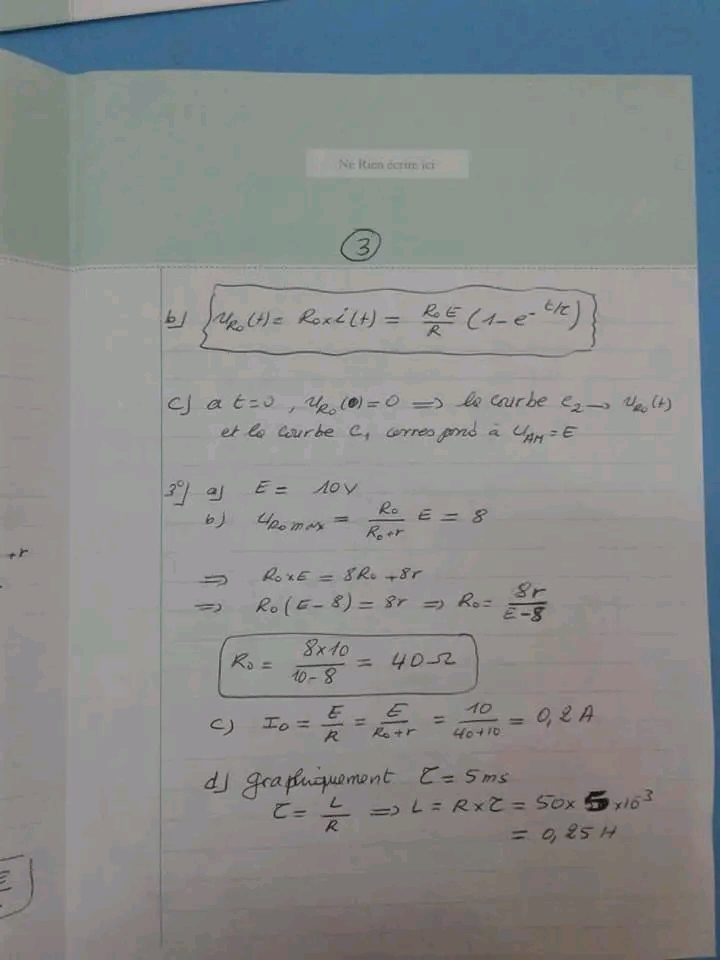 Ne Rien écrire ici
3
b) u_R₀(t) = R₀ × i(t) = R₀E/R (1 - e^- t/τ)
c) a t=0, u_R₀(0) = 0 ⟹ la courbe C₂ → u_R₀(t)
et la courbe C₁ correspond à u_AM = E
3°) a) E = 10V
b) u_R₀max = R₀/(R₀+r) E = 8
+r
⟹ R₀×E = 8R₀ + 8r
⟹ R₀(E-8) = 8r ⟹ R₀ = 8r/(E-8)
R₀ = 8×10/(10-8) = 40Ω
c) I₀ = E/R = E/(R₀+r) = 10/(40+10) = 0,2 A
d) graphiquement τ = 5ms
τ = L/R ⟹ L = R×τ = 50× 5 ×10³
= 0,25 H